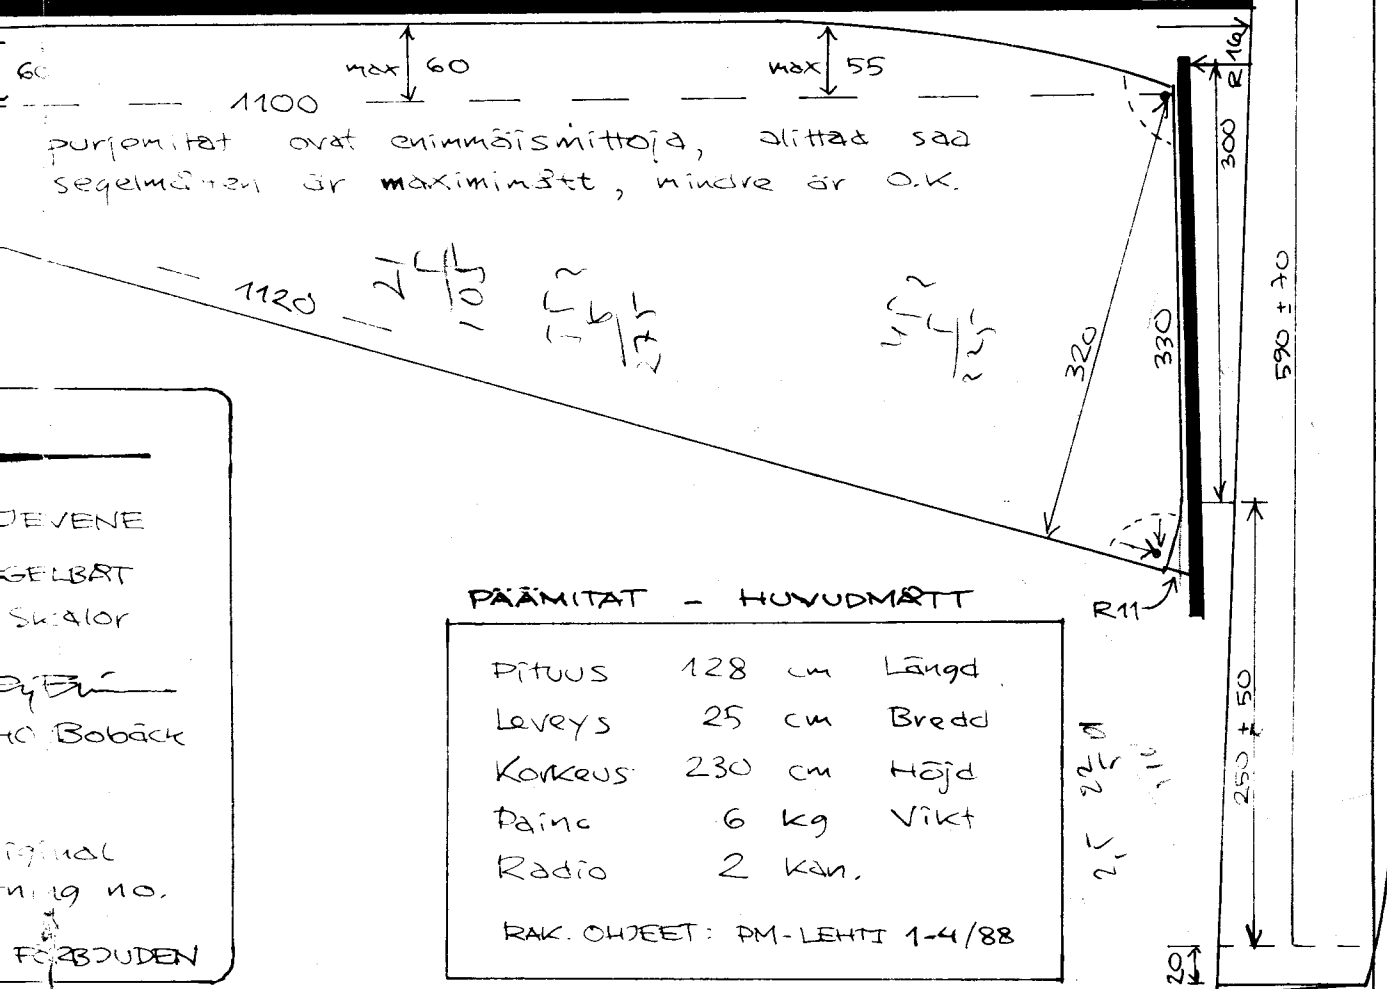 60 max 60 max 55
R 16
1100
300
purjemitat ovat enimmäismittoja, alittaa saa
segelmåtten är maximimått, mindre är O.K.
1120
320
330
590 ± 70
R11
250 ± 50
20
JEVENE
GELBÅT
Skalor
HO Bobäck
iginal
ning no.
FÖRBJUDEN
PÄÄMITAT - HUVUDMÅTT
Pituus 128 cm Längd
Leveys 25 cm Bredd
Korkeus 230 cm Höjd
Paino 6 kg Vikt
Radio 2 kan.
RAK. OHJEET: PM-LEHTI 1-4/88